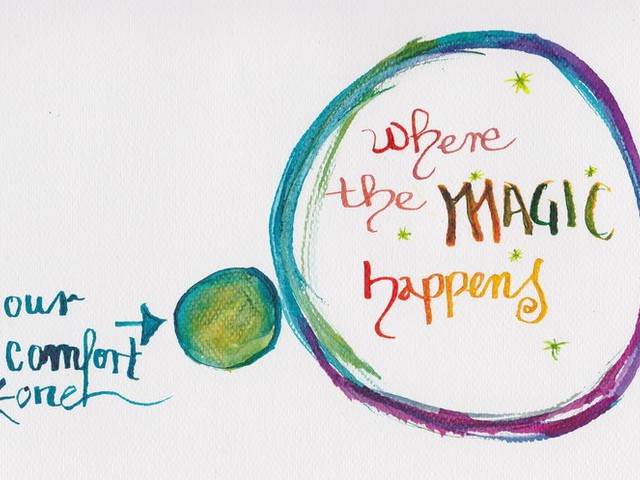 our
comfort
zone
where
the MAGIC
happens